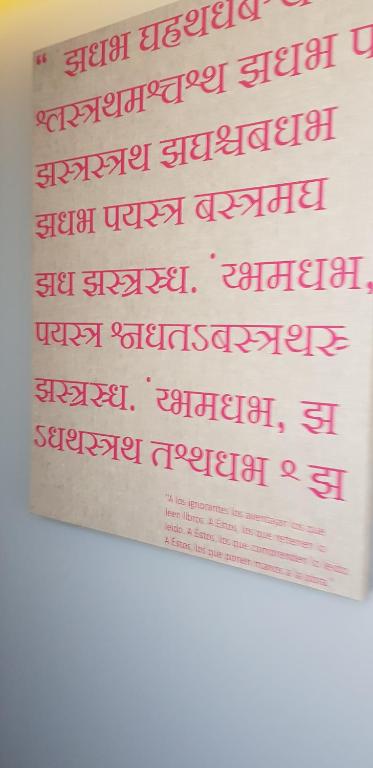 “ झधभ घहथधब
श्लस्त्रथमश्चश्थ झधभ प
झस्त्रस्त्रथ झघश्चबधभ
झधभ पयस्त्र बस्त्रमघ
झध झस्त्रस्र्ध. ˙य्भमधभ,
पयस्त्र श्नधतऽबस्त्रथरु
झस्त्रस्र्ध. ˙य्भमधभ, झ
ऽधथस्त्रथ तश्थधभ श् झ
"A los ignorantes los aventajan los que
leen libros. A Éstos, los que retienen lo
leído. A Éstos, los que comprenden lo leído.
A Éstos, los que ponen manos a la obra."